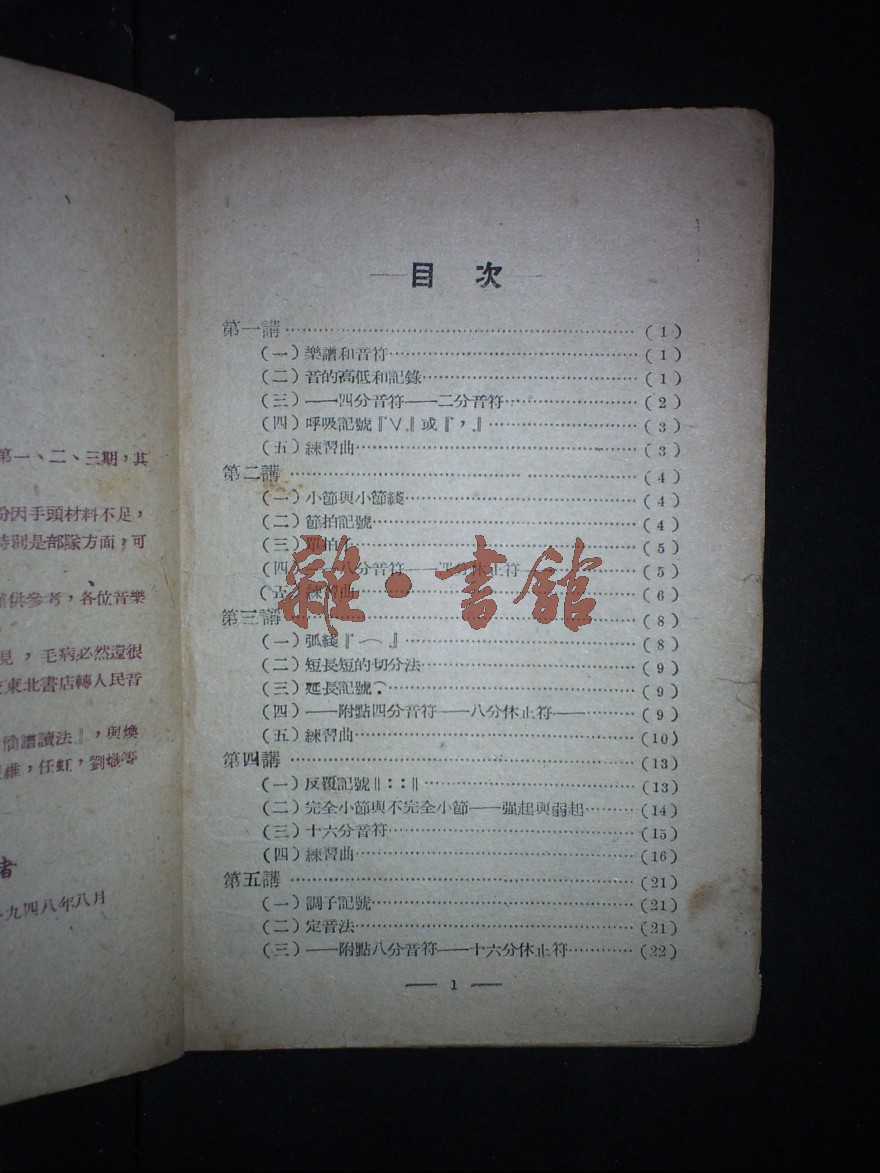 第一、二、三期，其
份因手頭材料不足，
特別是部隊方面，可
供參考，各位音樂
見，毛病必然還很
東北書店轉人民音
簡譜讀法』，與煥
維，任虹，劉熾等
者
一九四八年八月
目 次
第一講……(1)
(一)樂譜和音符……(1)
(二)音的高低和記錄……(1)
(三)——四分音符——二分音符……(2)
(四)呼吸記號『∨』或『，』……(3)
(五)練習曲……(3)
第二講……(4)
(一)小節與小節綫……(4)
(二)節拍記號……(4)
(三)單拍子……(5)
(四)——八分音符——四分休止符……(5)
(五)練習曲……(6)
第三講……(8)
(一)弧綫『⌒』……(8)
(二)短長短的切分法……(9)
(三)延長記號𝄐……(9)
(四)——附點四分音符——八分休止符——……(9)
(五)練習曲……(10)
第四講……(13)
(一)反覆記號‖：：‖……(13)
(二)完全小節與不完全小節——強起與弱起……(14)
(三)十六分音符……(15)
(四)練習曲……(16)
第五講……(21)
(一)調子記號……(21)
(二)定音法……(21)
(三)——附點八分音符——十六分休止符……(22)
— 1 —
雜·書館